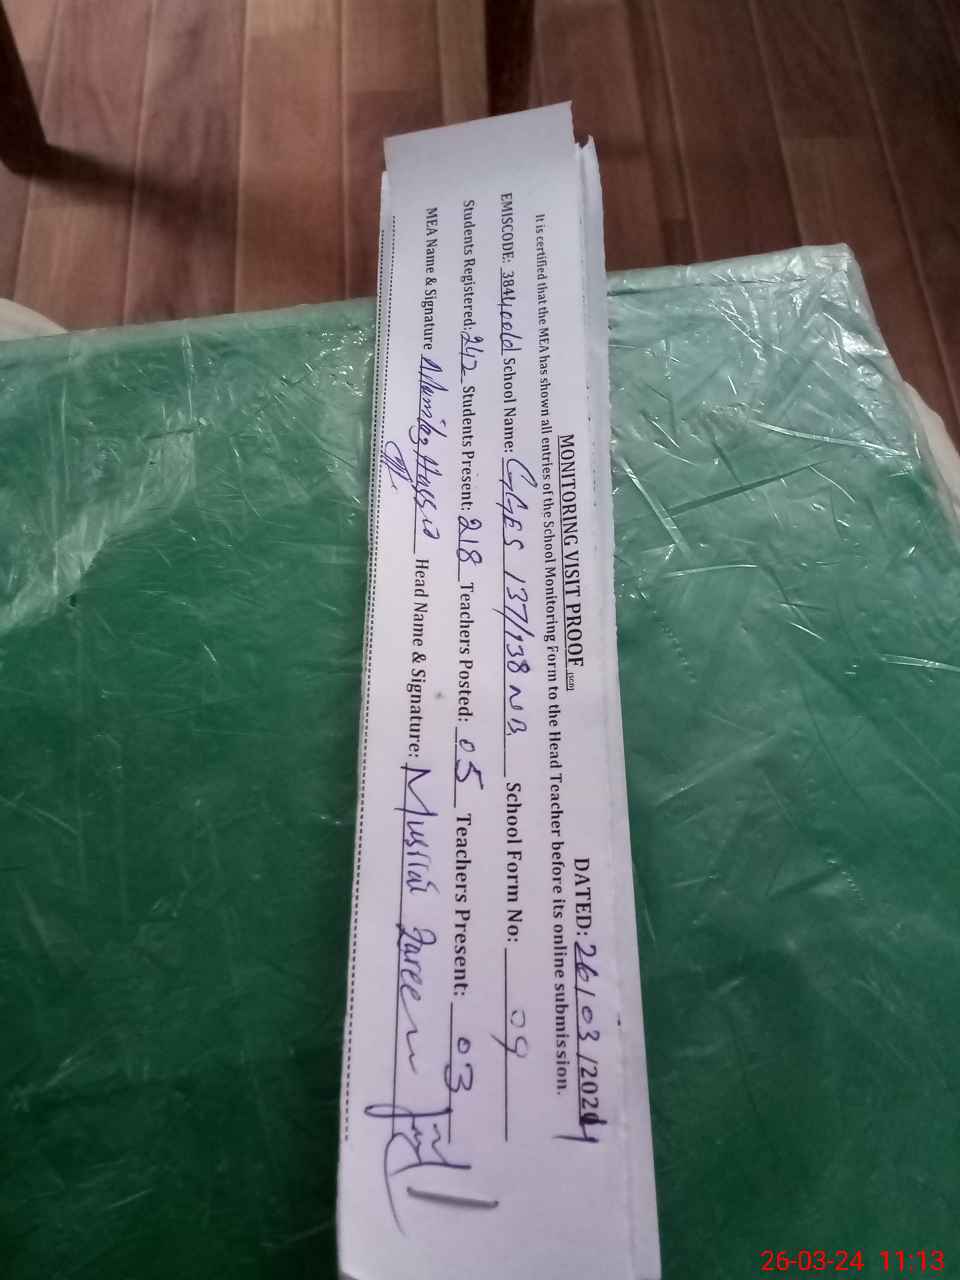 MONITORING VISIT PROOF (SGD) DATED: 26/03/2024
It is certified that the MEA has shown all entries of the School Monitoring Form to the Head Teacher before its online submission.
EMISCODE: School Name: GGES 137/138 NB School Form No: 09
Students Registered: 242 Students Present: 218 Teachers Posted: 05 Teachers Present: 03
MEA Name & Signature Head Name & Signature: Zareen
26-03-24 11:13